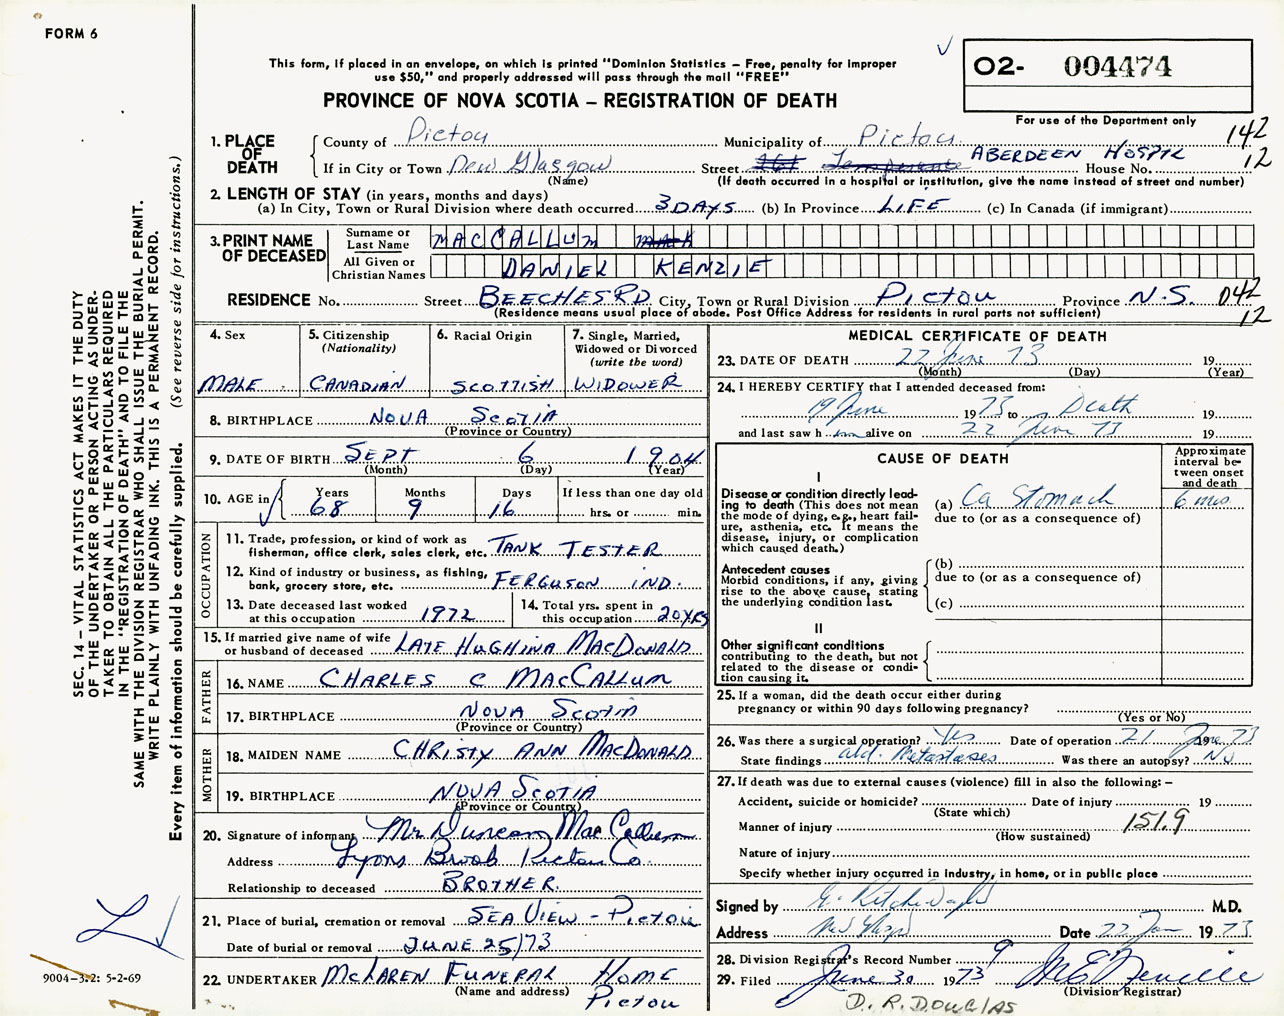 FORM 6
This form, if placed in an envelope, on which is printed "Dominion Statistics – Free, penalty for improper
use $50," and properly addressed will pass through the mail "FREE"
PROVINCE OF NOVA SCOTIA – REGISTRATION OF DEATH
02- 004474
For use of the Department only
142
12
1. PLACE OF DEATH
County of Pictou Municipality of Pictou
If in City or Town New Glasgow Street ABERDEEN HOSPTL House No.
(Name) (If death occurred in a hospital or institution, give the name instead of street and number)
2. LENGTH OF STAY (in years, months and days)
(a) In City, Town or Rural Division where death occurred 3 DAYS (b) In Province LIFE (c) In Canada (if immigrant)
3. PRINT NAME OF DECEASED
Surname or Last Name MACCALLUM
All Given or Christian Names DANIEL KENZIE
RESIDENCE No. Street BEECHES RD City, Town or Rural Division PICTOU Province N.S. 042
(Residence means usual place of abode. Post Office Address for residents in rural parts not sufficient) 12
4. Sex MALE
5. Citizenship (Nationality) CANADIAN
6. Racial Origin SCOTTISH
7. Single, Married, Widowed or Divorced (write the word) WIDOWER
8. BIRTHPLACE NOVA SCOTIA
(Province or Country)
9. DATE OF BIRTH SEPT 6 1904
(Month) (Day) (Year)
10. AGE in Years 68 Months 9 Days 16 If less than one day old hrs. or min.
OCCUPATION
11. Trade, profession, or kind of work as
fisherman, office clerk, sales clerk, etc. TANK TESTER
12. Kind of industry or business, as fishing,
bank, grocery store, etc. FERGUSON IND.
13. Date deceased last worked
at this occupation 1972
14. Total yrs. spent in
this occupation 20 YRS
15. If married give name of wife
or husband of deceased LATE HUGHINA MACDONALD
FATHER
16. NAME CHARLES C MACCALLUM
17. BIRTHPLACE NOVA SCOTIA
(Province or Country)
MOTHER
18. MAIDEN NAME CHRISTY ANN MACDONALD
19. BIRTHPLACE NOVA SCOTIA
(Province or Country)
20. Signature of informant Mr Duncan MacCallum
Address Lyons Brook Pictou Co.
Relationship to deceased BROTHER
21. Place of burial, cremation or removal SEA VIEW - PICTOU
Date of burial or removal JUNE 25/73
22. UNDERTAKER McLAREN FUNERAL HOME
(Name and address) PICTOU
MEDICAL CERTIFICATE OF DEATH
23. DATE OF DEATH 22 June 73 19
(Month) (Day) (Year)
24. I HEREBY CERTIFY that I attended deceased from:
19 June 1973 to Death 19
and last saw h im alive on 22 June 73 19
CAUSE OF DEATH
Approximate interval between onset and death
I
Disease or condition directly lead-
ing to death (This does not mean
the mode of dying, e.g., heart fail-
ure, asthenia, etc. It means the
disease, injury, or complication
which caused death.)
(a) Ca Stomach 6 mos
due to (or as a consequence of)
Antecedent causes
Morbid conditions, if any, giving
rise to the above cause, stating
the underlying condition last.
(b)
due to (or as a consequence of)
(c)
II
Other significant conditions
contributing to the death, but not
related to the disease or condi-
tion causing it.
25. If a woman, did the death occur either during
pregnancy or within 90 days following pregnancy?
(Yes or No)
26. Was there a surgical operation? Yes Date of operation 21 June 1973
State findings abd. Metastases Was there an autopsy? No
27. If death was due to external causes (violence) fill in also the following: –
Accident, suicide or homicide? Date of injury 19
(State which)
Manner of injury 151.9
(How sustained)
Nature of injury
Specify whether injury occurred in industry, in home, or in public place
Signed by M.D.
Address Date 22 1973
28. Division Registrar's Record Number 9
29. Filed June 30 1973
(Division Registrar)
D. R. DOUGLAS
SEC. 14 – VITAL STATISTICS ACT MAKES IT THE DUTY
OF THE UNDERTAKER OR PERSON ACTING AS UNDER-
TAKER TO OBTAIN ALL THE PARTICULARS REQUIRED
IN THE "REGISTRATION OF DEATH" AND TO FILE THE
SAME WITH THE DIVISION REGISTRAR WHO SHALL ISSUE THE BURIAL PERMIT.
WRITE PLAINLY WITH UNFADING INK. THIS IS A PERMANENT RECORD.
Every item of information should be carefully supplied. (See reverse side for instructions.)
9004-3.2: 5-2-69